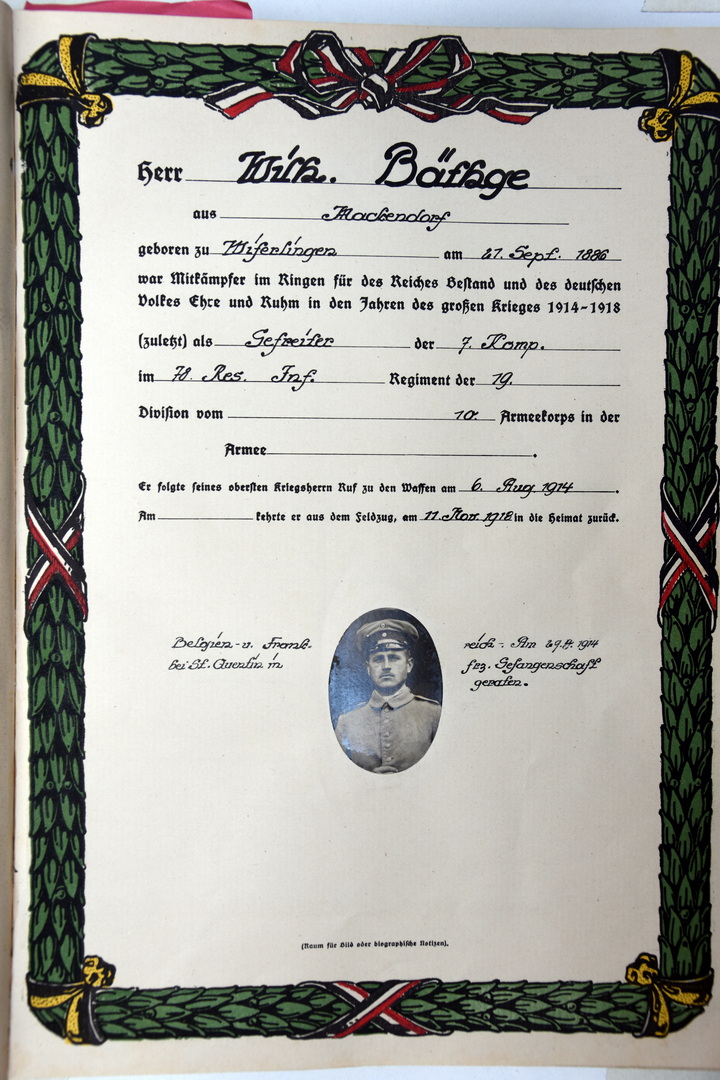 Herr Wilh. Bäthge
aus Mackendorf
geboren zu Wiferlingen am 21. Sept. 1886
war Mitkämpfer im Ringen für des Reiches Bestand und des deutschen
Volkes Ehre und Ruhm in den Jahren des großen Krieges 1914-1918
(zuletzt) als Gefreiter der 7. Komp.
im 78. Res. Inf. Regiment der 19.
Division vom 10. Armeekorps in der
Armee .
Er folgte seines obersten Kriegsherrn Ruf zu den Waffen am 6. Aug. 1914 .
Am kehrte er aus dem Feldzug, am 11. Nov. 1918 in die Heimat zurück.
Belgien- u. Frank- reich-. Am 29.8. 1914
bei St. Quentin in frz. Gefangenschaft
geraten.
(Raum für Bild oder biographische Notizen).